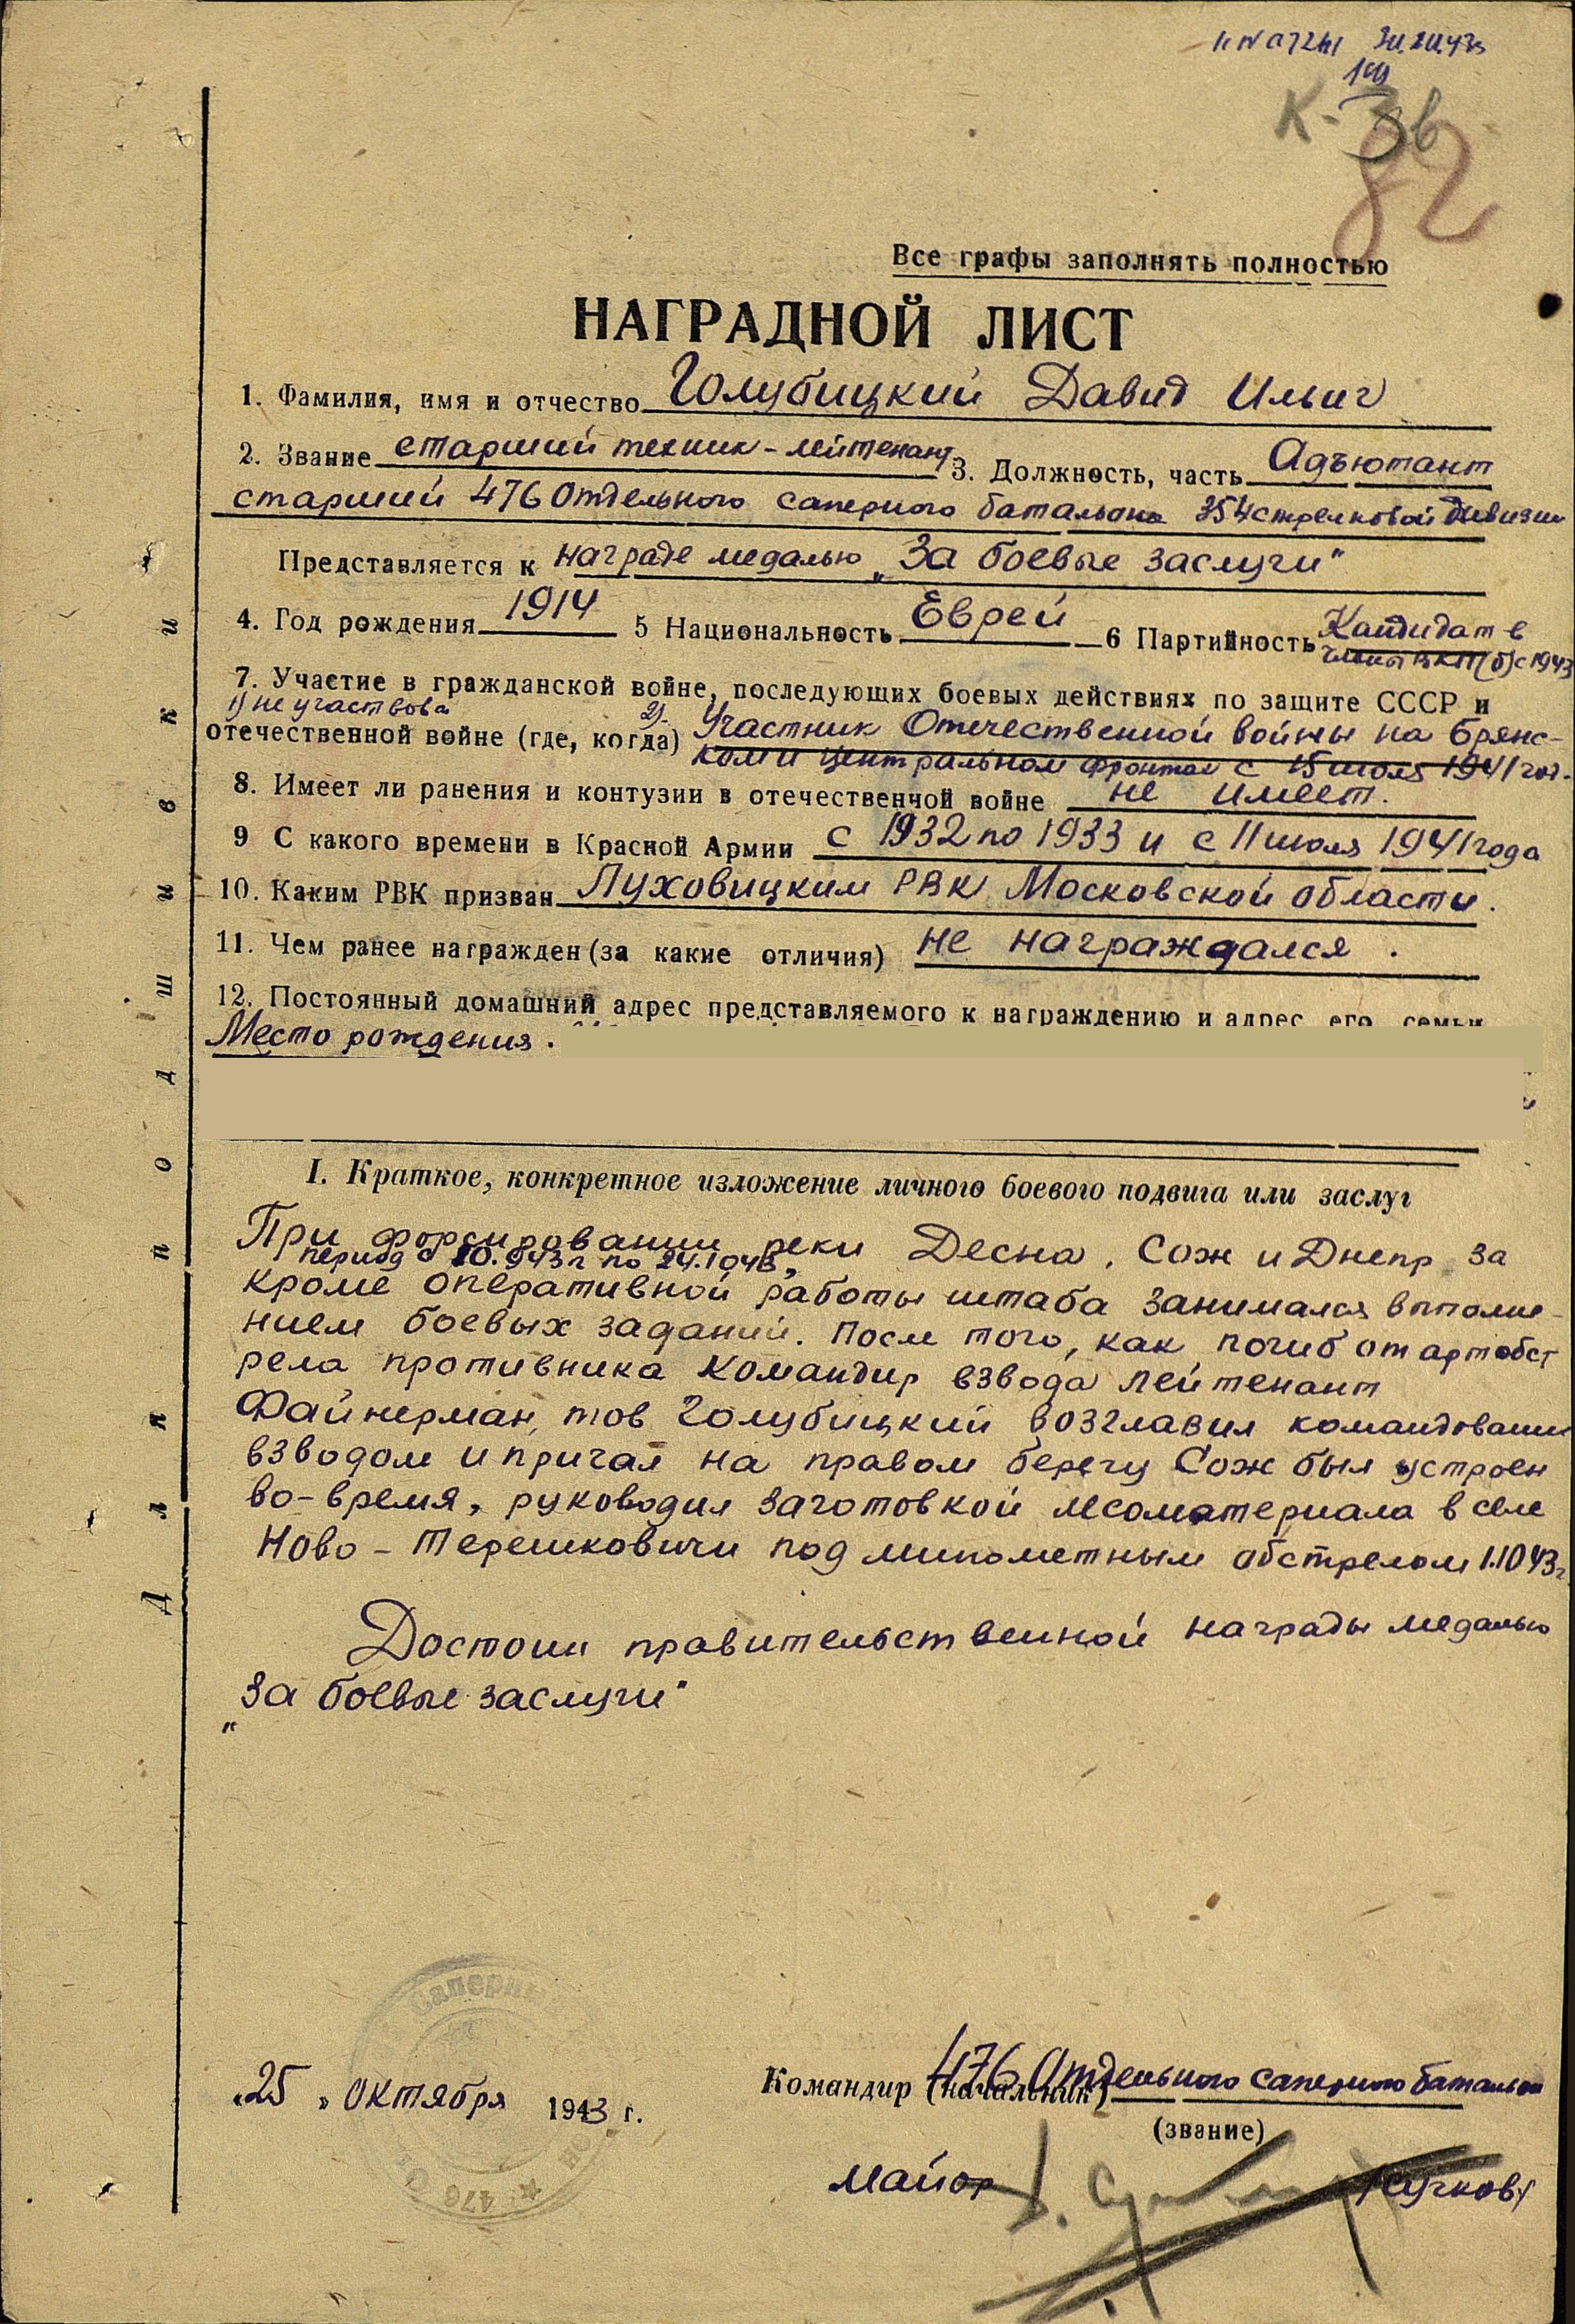 30.XII.43г
К-3в
82
Все графы заполнять полностью
НАГРАДНОЙ ЛИСТ
1. Фамилия, имя и отчество Голубицкий Давид Ильич
2. Звание старший техник-лейтенант 3. Должность, часть Адъютант
старший 476 Отдельного саперного батальона 354 стрелковой дивизии
Представляется к награде медалью „За боевые заслуги"
4. Год рождения 1914 5 Национальность Еврей 6 Партийность Кандидат в
члены ВКП(б) с 1943
7. Участие в гражданской войне, последующих боевых действиях по защите СССР и
1) не участвова
отечественной войне (где, когда) 2). Участник Отечественной войны на Брянс-
ком и Центральном фронтах с 15 июля 1941 год.
8. Имеет ли ранения и контузии в отечественной войне не имеет.
9 С какого времени в Красной Армии с 1932 по 1933 и с 11 июля 1941 года
10. Каким РВК призван Луховицким РВК Московской области.
11. Чем ранее награжден (за какие отличия) не награждался.
12. Постоянный домашний адрес представляемого к награждению и адрес его семьи
Место рождения.
I. Краткое, конкретное изложение личного боевого подвига или заслуг
При форсировании реки Десна, Сож и Днепр за
период с 10.943г по 24.1043,
кроме оперативной работы штаба занимался выполне-
нием боевых заданий. После того, как погиб от артобст
рела противника командир взвода лейтенант
Файнерман, тов Голубицкий возглавил командование
взводом и причал на правом берегу Сож был устроен
во-время, руководил заготовкой лесоматериала в селе
Ново-Терешковичи под минометным обстрелом 1.1043г.
Достоин правительственной награды медалью
„За боевые заслуги"
Для подшивки
Саперный
476
„25" октября 1943 г.
Командир (начальник) 476 Отдельного саперного батальон
(звание)
майор /Сучков/